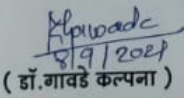 8/9/2021
( डॉ.गावडे कल्पना )